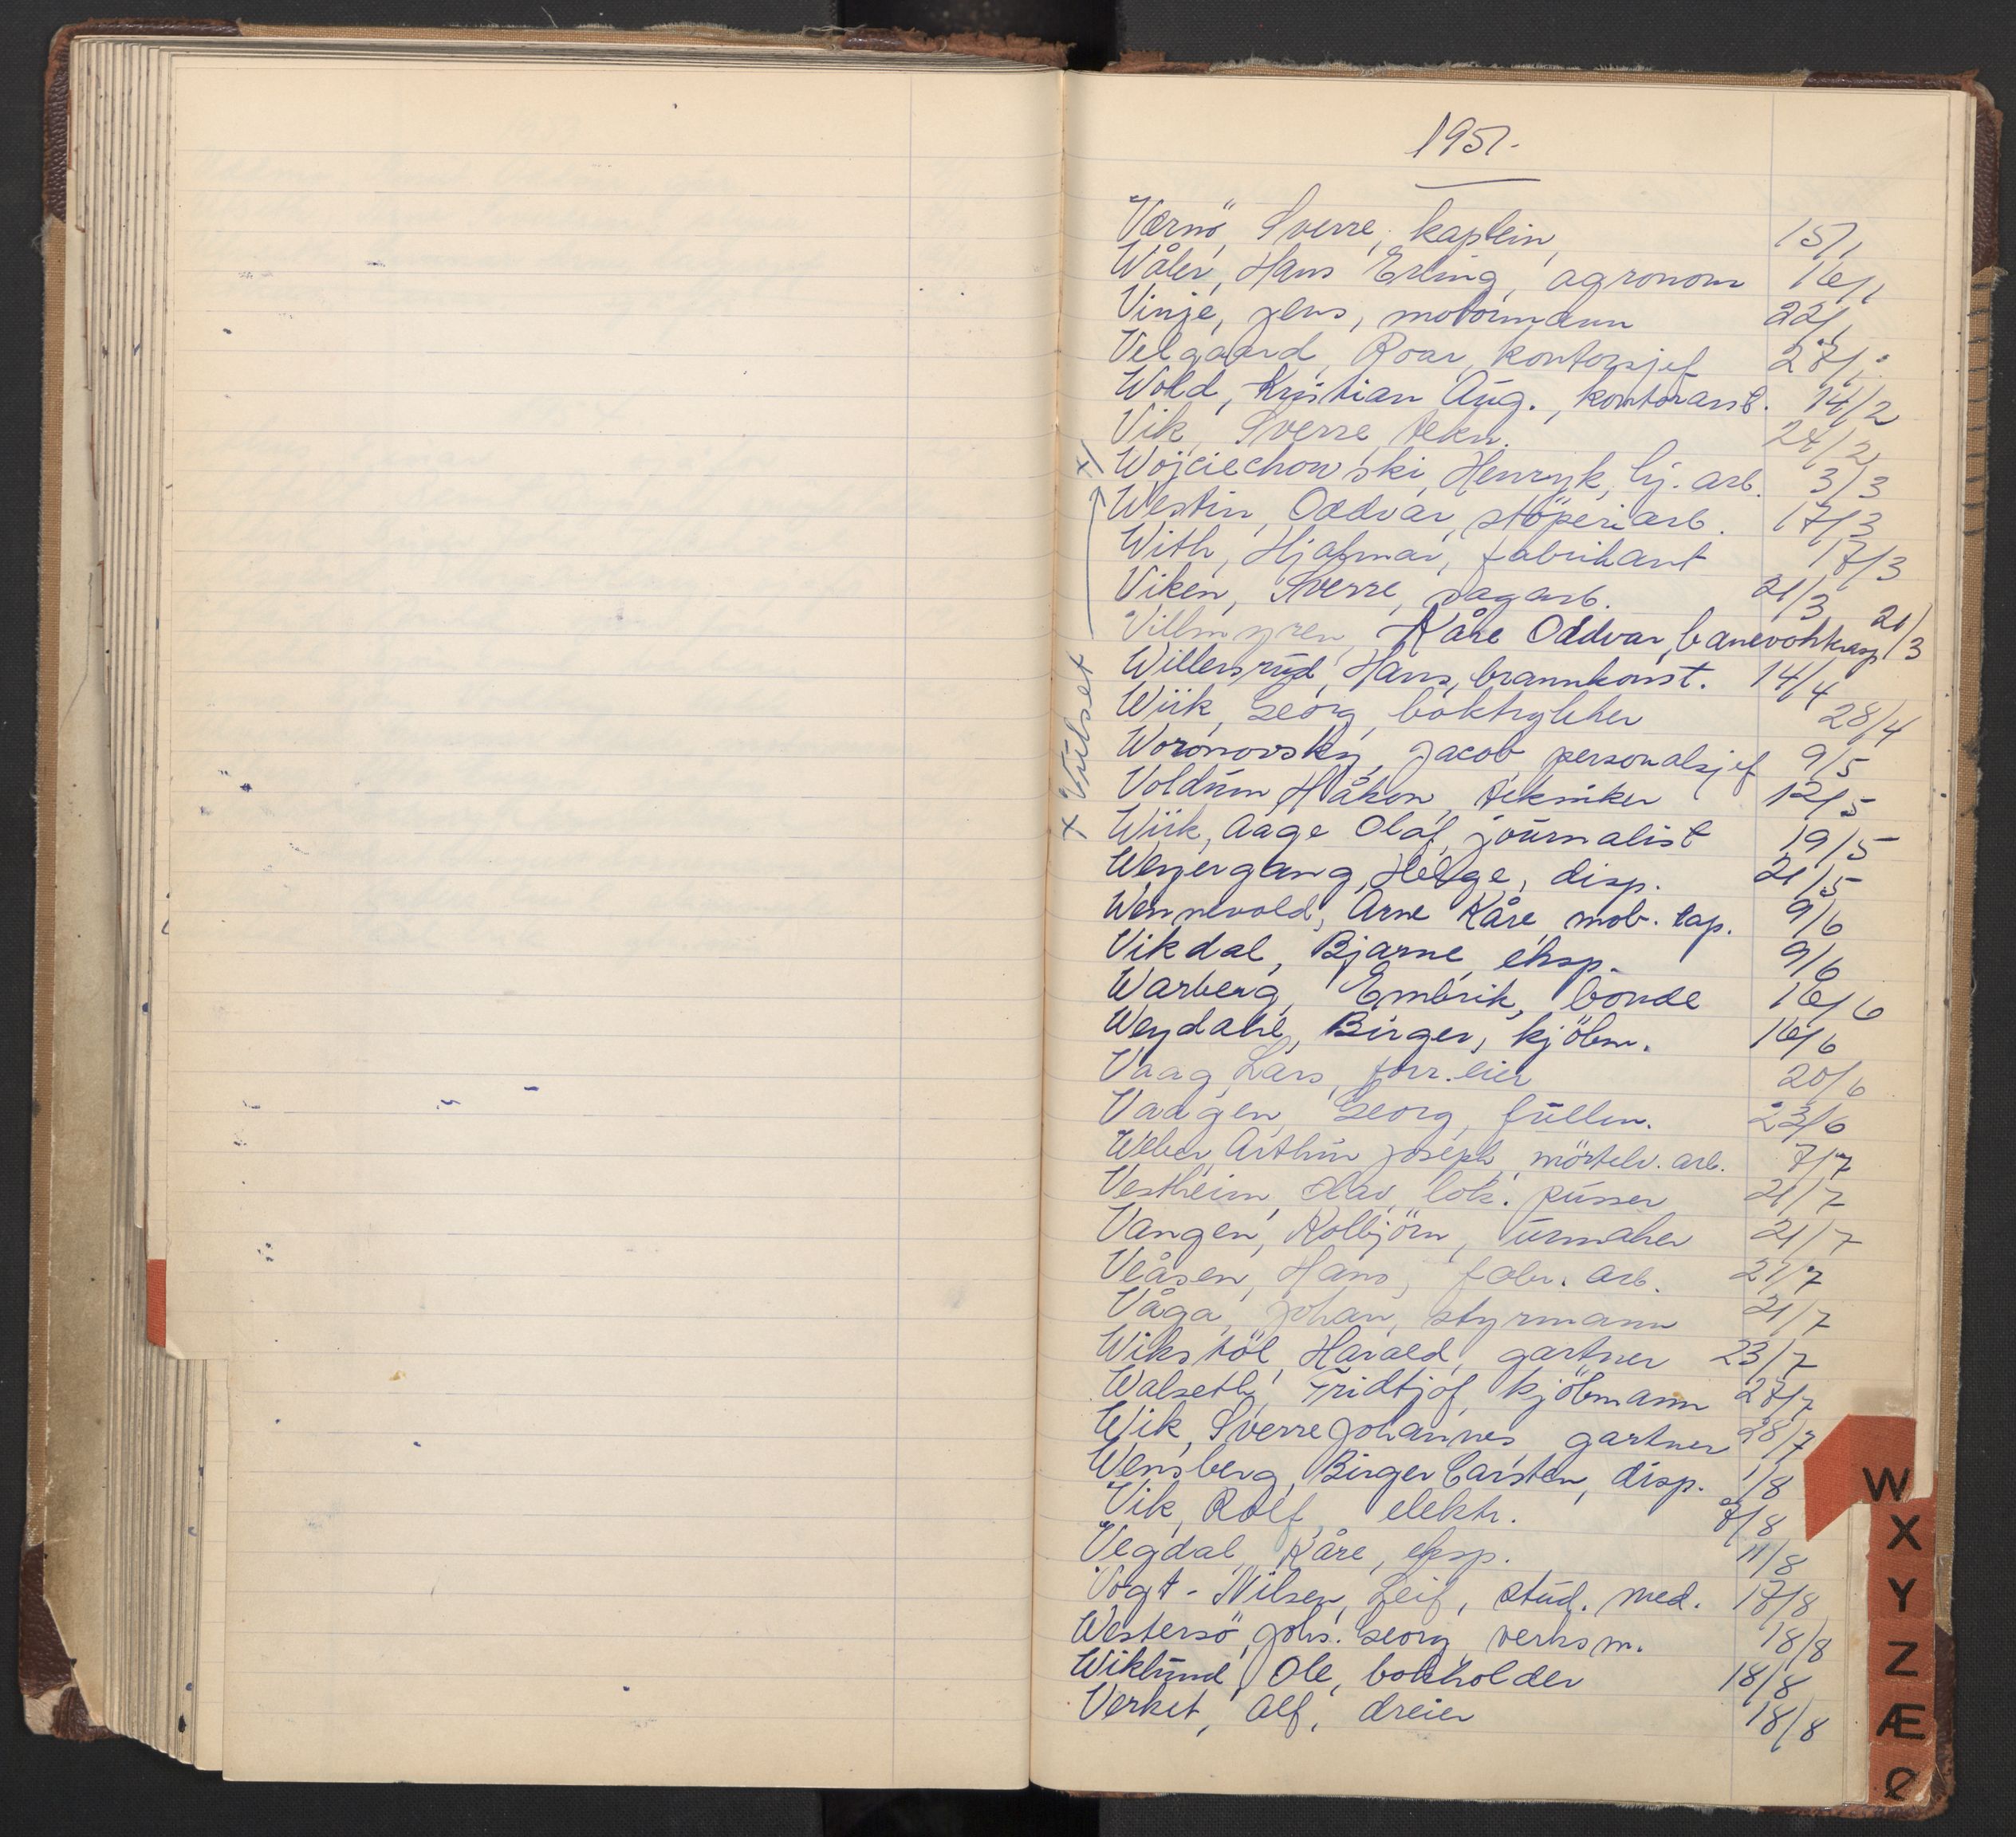 1951.
Værnö, Sverre, kaptein, 15/1
Wåler, Hans Erling, agronom 16/1
Vinje, Jens, motormann 22/1
Velgaard, Roar, kontorsjef 27/1.
Wold, Kristian Aug., kontorass. 14/2
Vik, Sverre, tekn. 24/2
x/ Wojciechowski, Henryk, hj. arb. 3/3
Westin, Oddvar, stöperiarb. 17/3
With, Hjalmar, fabrikant 17/3
Viken, Sverre, sagarb. 21/3
Villmyren, Kåre Oddvar, banevokt 21/3
Willersrud, Hans, brannkonst. 14/4
x Vulset
Wiik, Georg, boktrykker 28/4
Woronovsky, Jacob personalsjef 9/5
Voldum Håkon, tekniker 12/5
Wiik, Aage Olaf, journalist 19/5
Weyergang, Helge, disp. 21/5
Wennevold, Arne Kåre, mob. tap. 9/6
Vikdal, Bjarne, eksp. 9/6
Warberg, Embrik, bonde 16/6
Weydahl, Birger, kjöbm. 16/6
Vaag, Lars, forr. eier 20/6
Vaagen, Georg, fullm. 23/6
Weber, Arthur Joseph, mörtelv. arb. 7/7
Vestheim, Olav, lok. pusser 21/7
Vangen, Kolbjörn, urmaker 21/7
Veåsen, Hans, fabr. arb. 21/7
Våga, Johan, styrmann 21/7
Wikstöl, Harald, gartner 23/7
Walseth, Fridtjof, kjöbmann 27/7
Wik, Sverre Johannes, gartner 28/7
Wensberg, Birger Carsten, disp. 1/8
Vik, Rolf, elektr. 7/8
Vegdal, Kåre, eksp. 11/8
Vogt-Nilsen, Leif, stud. med. 17/8
Westersö, Johs. Georg, verksm. 18/8
Wiklund, Ole, bokholder 18/8
Verket, Alf, dreier 18/8
W
X
Y
Z
Æ
Ø